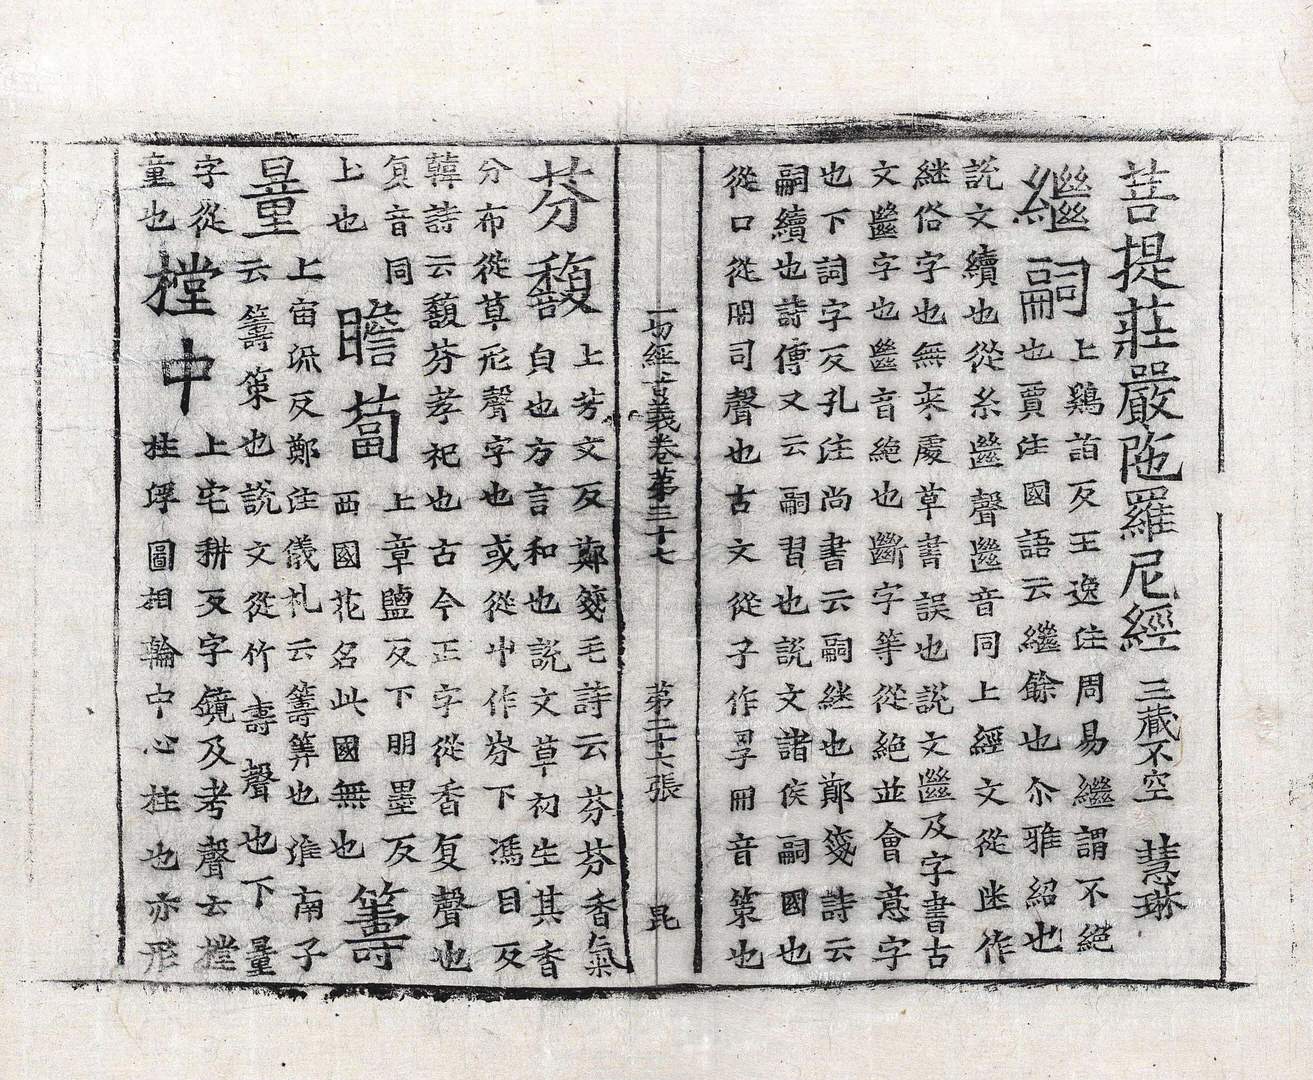 菩提莊嚴陁羅尼經 三藏不空 慧琳
繼嗣 上鷄詣反王逸注周易繼謂不絕
也賈注國語云繼餘也尒雅紹也
說文續也從糸㡭聲㡭音同上經文從迷作
継俗字也無来處草書誤也說文㡭及字書古
文㡭字也㡭音絶也斷字等從絕並會意字
也下詞字反孔注尚書云嗣継也鄭箋詩云
嗣續也詩傳又云嗣習也說文諸侯嗣國也
從口從冊司聲也古文從子作孠冊音策也
一切經音義卷第三十七 第二十六張 昆
芬馥 上芳文反鄭箋毛詩云芬芬香氣
皃也方言和也說文草初生其香
分布從草形聲字也或從屮作岎下馮目反
韓詩云馥芬孝祀也古今正字從香复聲也
复音同
上也
瞻蔔 上章鹽反下朋墨反
西國花名此國無也
籌
量 上宙流反鄭注儀礼云籌筭也淮南子
云籌策也說文從竹壽聲也下量
字從
童也
橦中 上宅耕反字鏡及考聲云橦
柱浮圖相輪中心柱也亦形